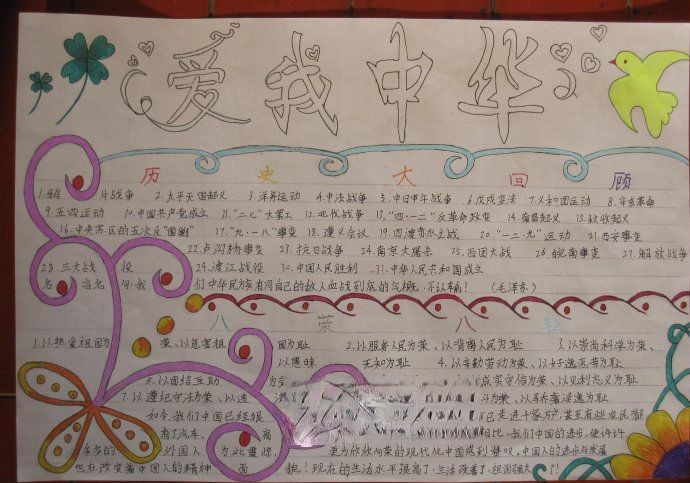 爱我中华
历史大回顾
1.鸦片战争 2.太平天国起义 3.洋务运动 4.中法战争 5.中日甲午战争 6.戊戌变法 7.义和团运动 8.辛亥革命
9.五四运动 10.中国共产党成立 11."二七"大罢工 12.北伐战争 13."四·一二"反革命政变 14.南昌起义 15.秋收起义
16.中央苏区的五次反"围剿" 17."九·一八"事变 18.遵义会议 19.四渡赤水之战 20."一二·九"运动 21.西安事变
22.卢沟桥事变 23.抗日战争 24.南京大屠杀 25.百团大战 26.皖南事变 27.解放战争
28.三大战役 29.渡江战役 30.中国人民胜利 31.中华人民共和国成立
名言名句:我们中华民族有同自己的敌人血战到底的气概,不认输! (毛泽东)
八荣八耻
1.以热爱祖国为荣、以危害祖国为耻 2.以服务人民为荣、以背离人民为耻 3.以崇尚科学为荣、
以愚昧无知为耻 4.以辛勤劳动为荣、以好逸恶劳为耻
5.以团结互助为 实守信为荣、以见利忘义为耻
7.以遵纪守法为荣、以违 为荣、以骄奢淫逸为耻
如今,我们中国已经很 已走进千家万户,甚至有些农民都
有了汽车、 高 相比,我们中国的进步,使许许
多多的外国人为此震惊, 更为欣欣向荣的现代化中国感到赞叹。中国人的进步与发展
也在改变着中国人的精神面貌!现在的生活水平提高了,生活改善了,祖国强大了!